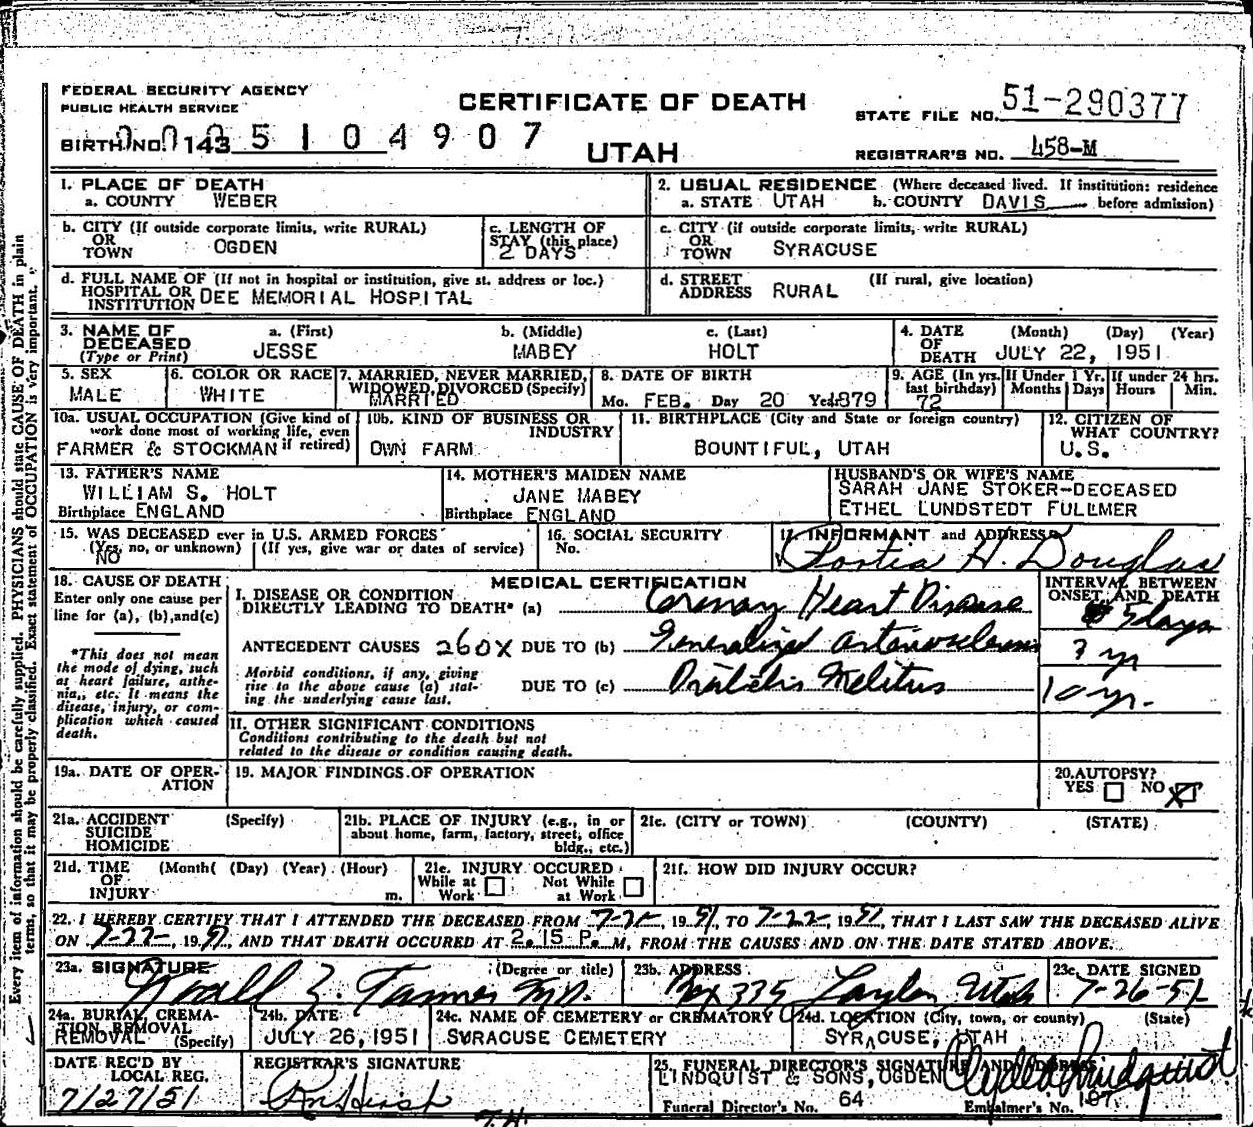 FEDERAL SECURITY AGENCY
PUBLIC HEALTH SERVICE
CERTIFICATE OF DEATH
UTAH
STATE FILE NO. 51-290377
BIRTH NO. 143 5104907
REGISTRAR'S NO. 458-M
1. PLACE OF DEATH
a. COUNTY WEBER
2. USUAL RESIDENCE (Where deceased lived. If institution: residence before admission)
a. STATE UTAH b. COUNTY DAVIS
b. CITY (If outside corporate limits, write RURAL)
OR TOWN OGDEN
c. LENGTH OF STAY (this place)
2 DAYS
c. CITY (if outside corporate limits, write RURAL)
OR TOWN SYRACUSE
d. FULL NAME OF (If not in hospital or institution, give st. address or loc.)
HOSPITAL OR INSTITUTION DEE MEMORIAL HOSPITAL
d. STREET ADDRESS RURAL (If rural, give location)
3. NAME OF DECEASED (Type or Print)
a. (First) b. (Middle) c. (Last)
JESSE MABEY HOLT
4. DATE OF DEATH (Month) (Day) (Year)
JULY 22, 1951
5. SEX
MALE
6. COLOR OR RACE
WHITE
7. MARRIED, NEVER MARRIED, WIDOWED, DIVORCED (Specify)
MARRIED
8. DATE OF BIRTH
Mo. FEB. Day 20 Year 1879
9. AGE (In yrs. last birthday)
72
If Under 1 Yr. Months Days
If under 24 hrs. Hours Min.
10a. USUAL OCCUPATION (Give kind of work done most of working life, even if retired)
FARMER & STOCKMAN
10b. KIND OF BUSINESS OR INDUSTRY
OWN FARM
11. BIRTHPLACE (City and State or foreign country)
BOUNTIFUL, UTAH
12. CITIZEN OF WHAT COUNTRY?
U.S.
13. FATHER'S NAME
WILLIAM S. HOLT
Birthplace ENGLAND
14. MOTHER'S MAIDEN NAME
JANE MABEY
Birthplace ENGLAND
HUSBAND'S OR WIFE'S NAME
SARAH JANE STOKER-DECEASED
ETHEL LUNDSTEDT FULLMER
15. WAS DECEASED ever in U.S. ARMED FORCES
(Yes, no, or unknown) (If yes, give war or dates of service)
NO
16. SOCIAL SECURITY
No.
17. INFORMANT and ADDRESS
Portia H. Douglas
18. CAUSE OF DEATH
Enter only one cause per line for (a), (b), and (c)
*This does not mean the mode of dying, such as heart failure, asthenia, etc. It means the disease, injury, or complication which caused death.
MEDICAL CERTIFICATION
INTERVAL BETWEEN ONSET AND DEATH
I. DISEASE OR CONDITION
DIRECTLY LEADING TO DEATH* (a) Coronary Heart Disease
5 days
ANTECEDENT CAUSES 260X DUE TO (b) Generalized arteriosclerosis
? yr
Morbid conditions, if any, giving rise to the above cause (a) stating the underlying cause last.
DUE TO (c) Diabetis Melitus
10 yr.
II. OTHER SIGNIFICANT CONDITIONS
Conditions contributing to the death but not
related to the disease or condition causing death.
19a. DATE OF OPERATION
19. MAJOR FINDINGS OF OPERATION
20. AUTOPSY?
YES NO X
21a. ACCIDENT SUICIDE HOMICIDE (Specify)
21b. PLACE OF INJURY (e.g., in or about home, farm, factory, street, office bldg., etc.)
21c. (CITY or TOWN) (COUNTY) (STATE)
21d. TIME OF INJURY (Month( (Day) (Year) (Hour) m.
21e. INJURY OCCURED
While at Work Not While at Work
21f. HOW DID INJURY OCCUR?
22. I HEREBY CERTIFY THAT I ATTENDED THE DECEASED FROM 7-21-, 1951, TO 7-22-, 1951, THAT I LAST SAW THE DECEASED ALIVE
ON 7-22-, 1951, AND THAT DEATH OCCURED AT 2.15 P. M, FROM THE CAUSES AND ON THE DATE STATED ABOVE.
23a. SIGNATURE (Degree or title)
Noall Z. Tanner M.D.
23b. ADDRESS
Box 335 Layton Utah
23c. DATE SIGNED
7-26-51
24a. BURIAL, CREMATION, REMOVAL (Specify)
REMOVAL
24b. DATE
JULY 26, 1951
24c. NAME OF CEMETERY or CREMATORY
SYRACUSE CEMETERY
24d. LOCATION (City, town, or county) (State)
SYRACUSE, UTAH
DATE REC'D BY LOCAL REG.
7/27/51
REGISTRAR'S SIGNATURE
25. FUNERAL DIRECTOR'S SIGNATURE AND ADDRESS
LINDQUIST & SONS, OGDEN
Funeral Director's No. 64
Embalmer's No. 107
Every item of information should be carefully supplied. PHYSICIANS should state CAUSE OF DEATH in plain
terms, so that it may be properly classified. Exact statement of OCCUPATION is very important.